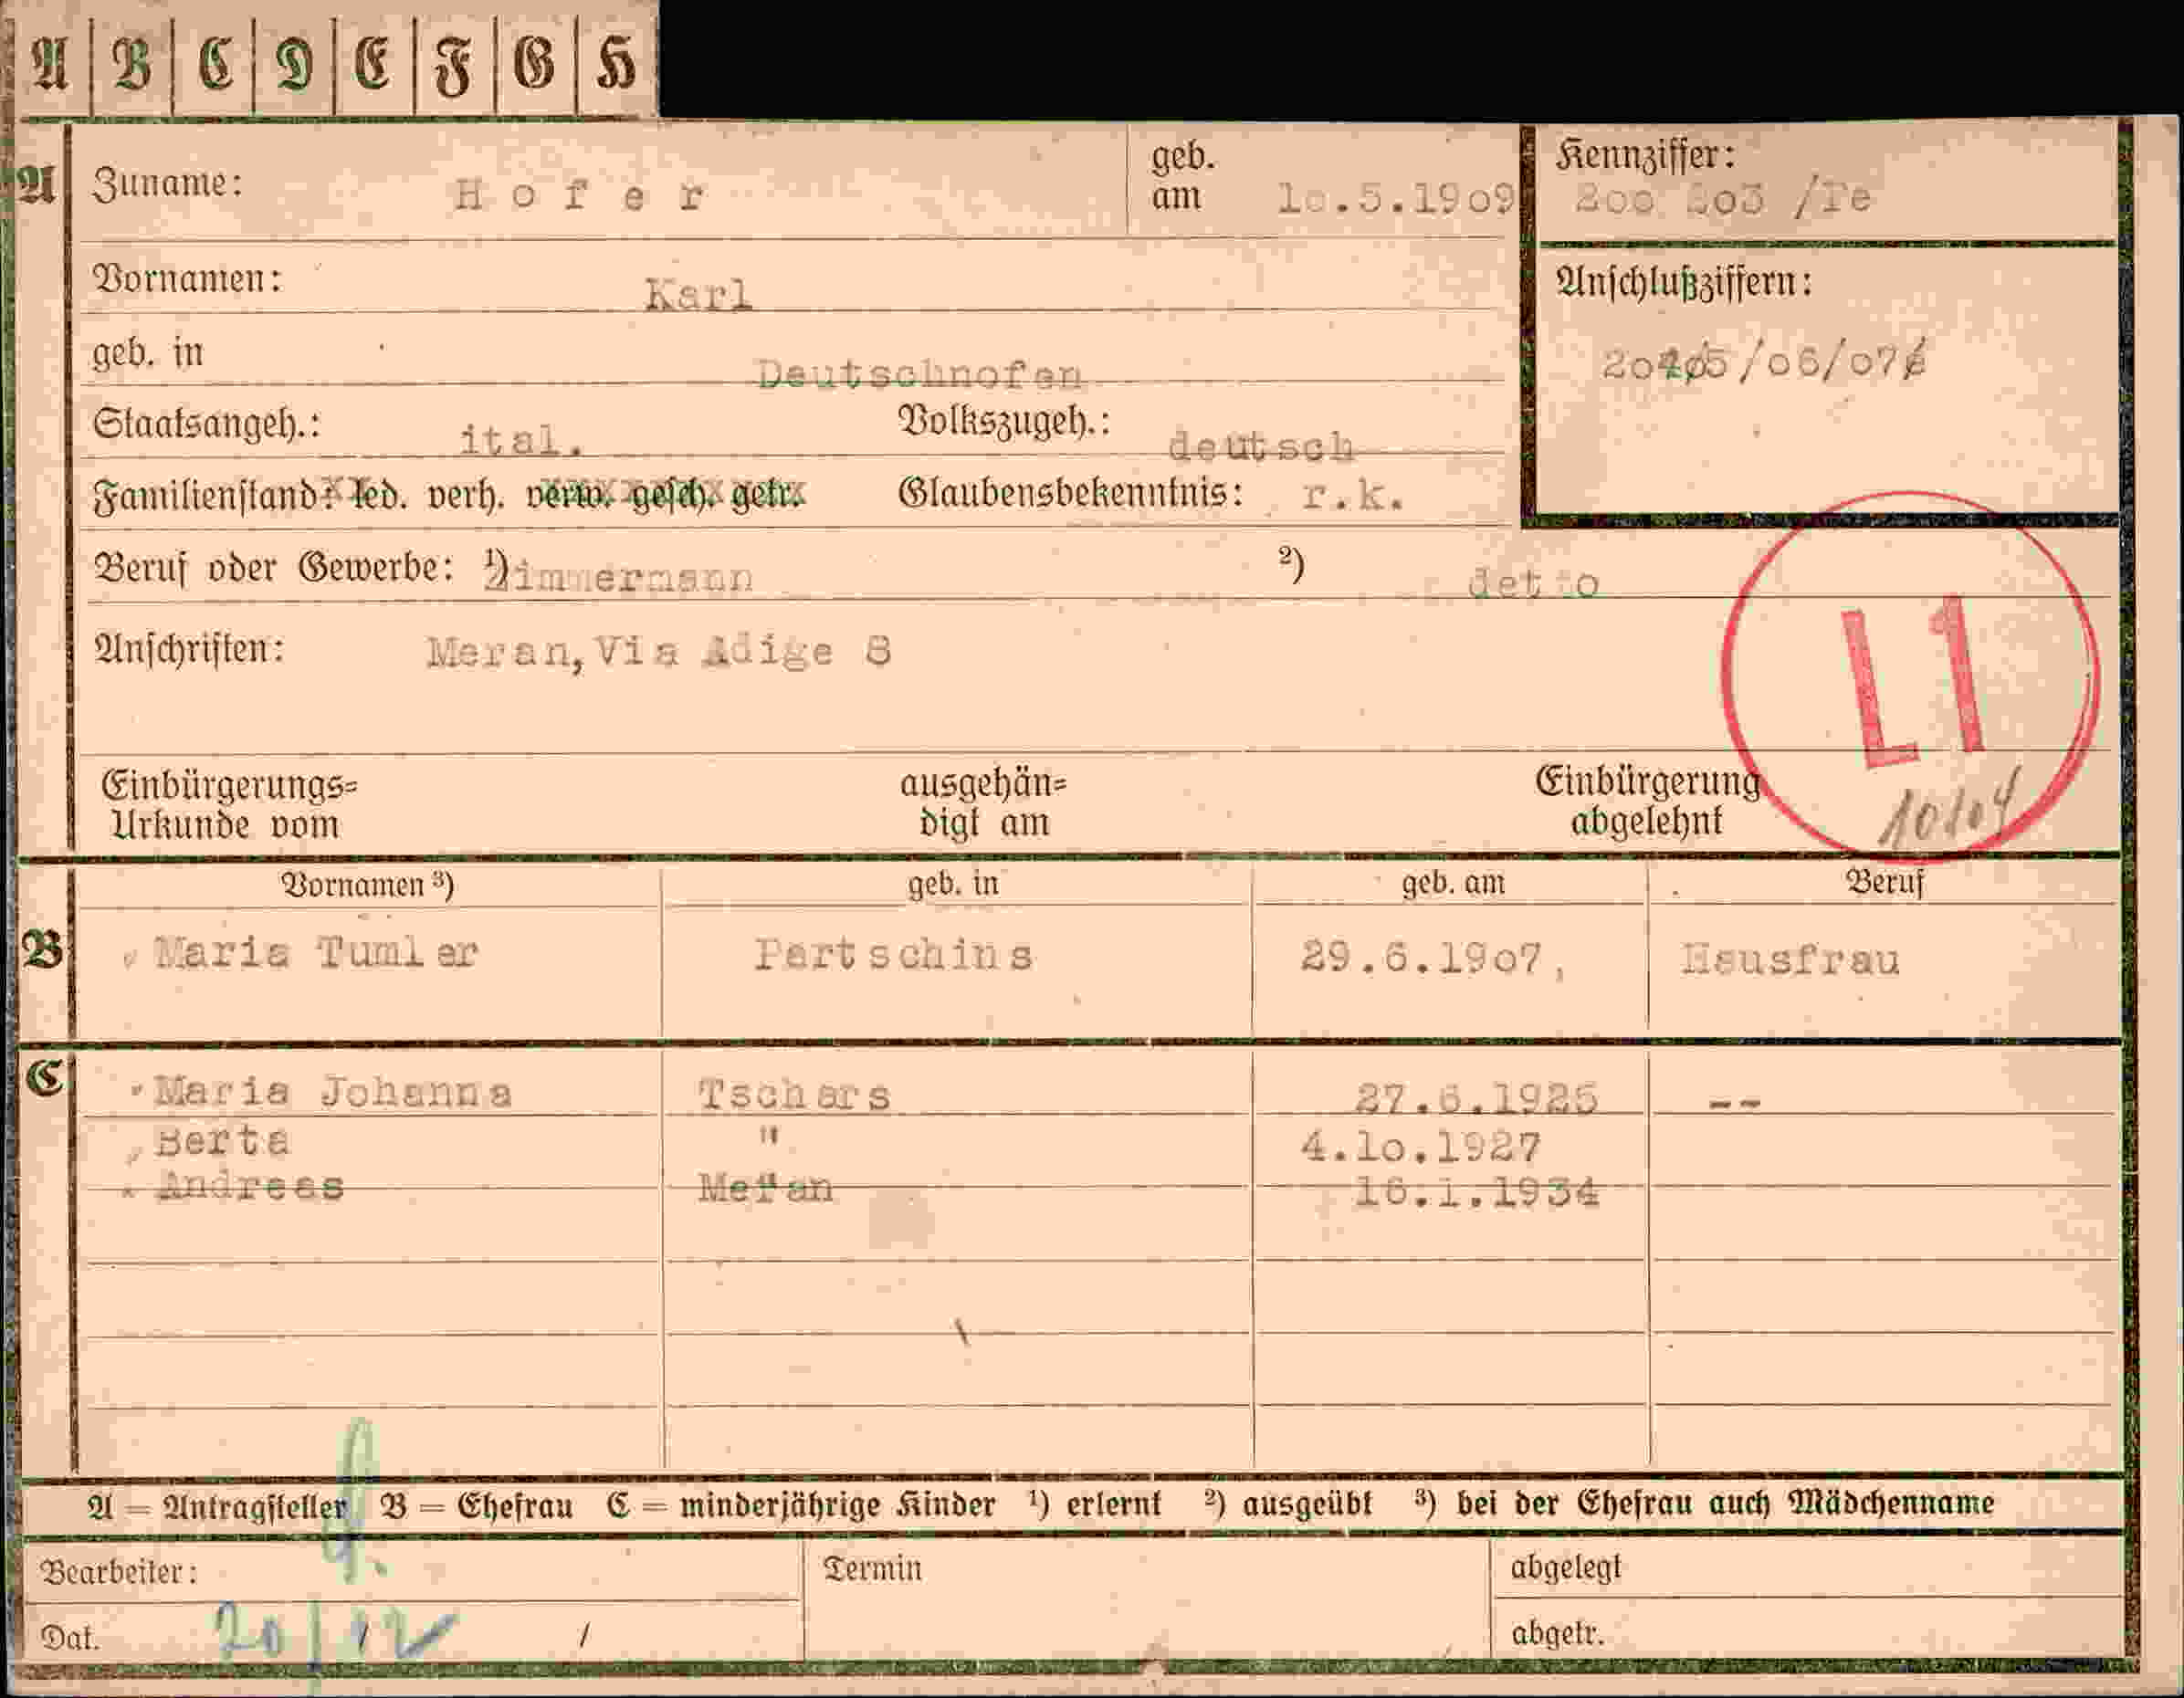 A B C D E F G H
A Zuname: Hofer geb. am 1o.5.19o9 Kennziffer:
2oo 2o3 /Te
Vornamen: Karl Anschlußziffern:
geb. in Deutschnofen
/o6/o7
Staatsangeh.: ital. Volkszugeh.: deutsch
Familienstand: led. verh. verw. gesch. getr. Glaubensbekenntnis: r.k.
Beruf oder Gewerbe: 1) Zimmermann 2) detto
Anschriften: Meran, Via Adige 8
L1
Einbürgerungs= Urkunde vom ausgehän= digt am Einbürgerung abgelehnt
10/04
Vornamen 3) geb. in geb. am Beruf
B Maria Tumler Partschins 29.6.19o7, Hausfrau
C Maria Johanna Tschars 27.6.1925 --
Berta " 4.1o.1927
Andreas Meran 16.1.1934
A = Antragsteller B = Ehefrau C = minderjährige Kinder 1) erlernt 2) ausgeübt 3) bei der Ehefrau auch Mädchenname
Bearbeiter: Termin abgelegt
Dat. 20/12 / abgetr.